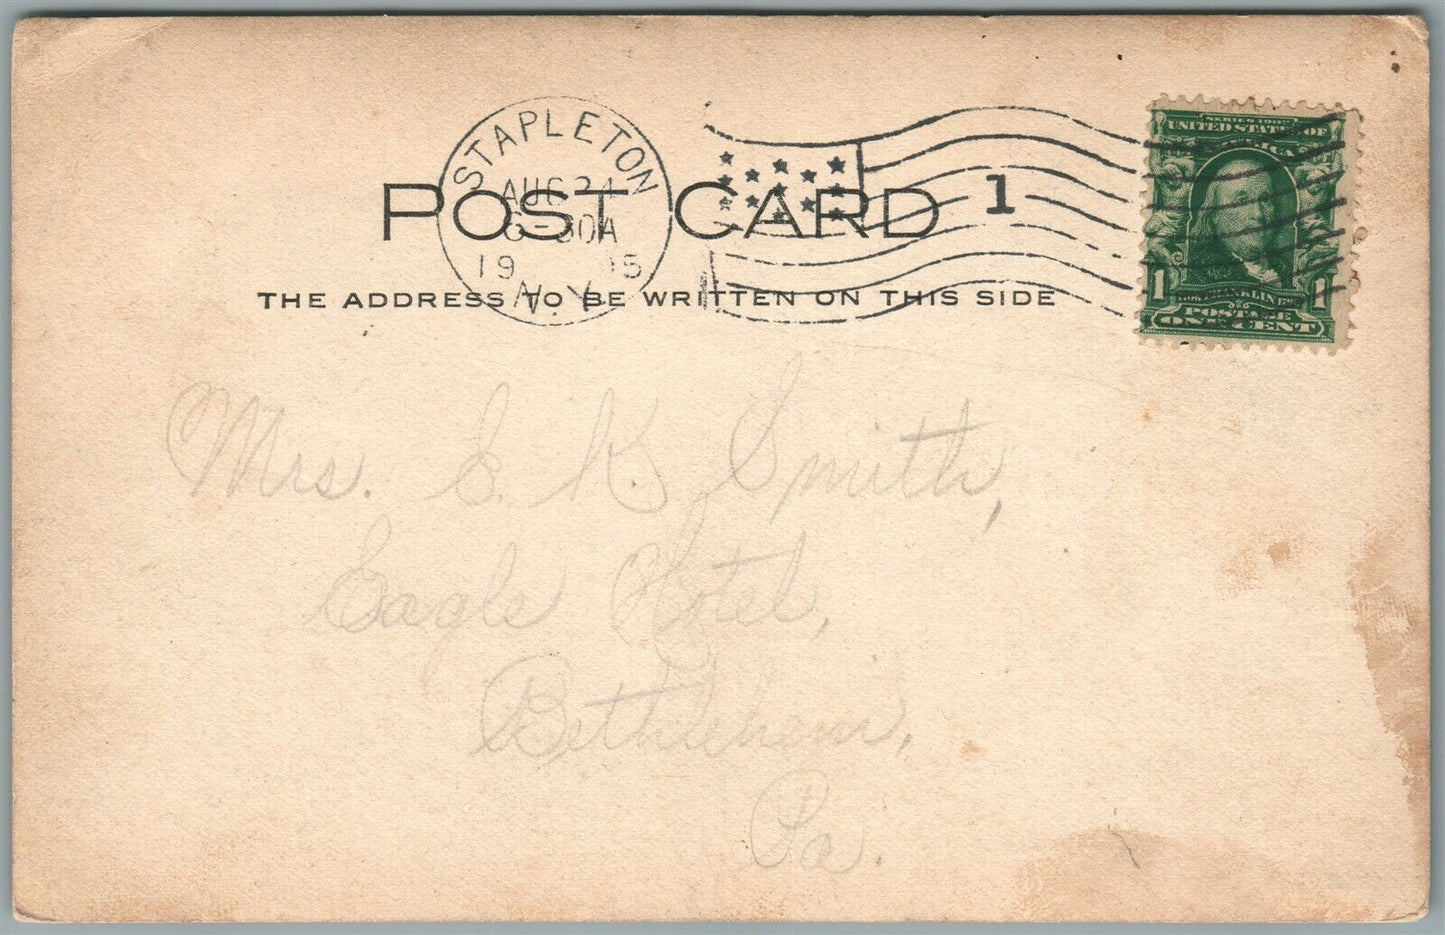 STAPLETON
AUG 24
30A
19 5
N.Y.
1
POST CARD
THE ADDRESS TO BE WRITTEN ON THIS SIDE
SERIES 1902
UNITED STATES OF
AMERICA
1 1
FRANKLIN
POSTAGE
ONE CENT
Mrs. E. K. Smith,
Eagle Hotel,
Bethlehem,
Pa.